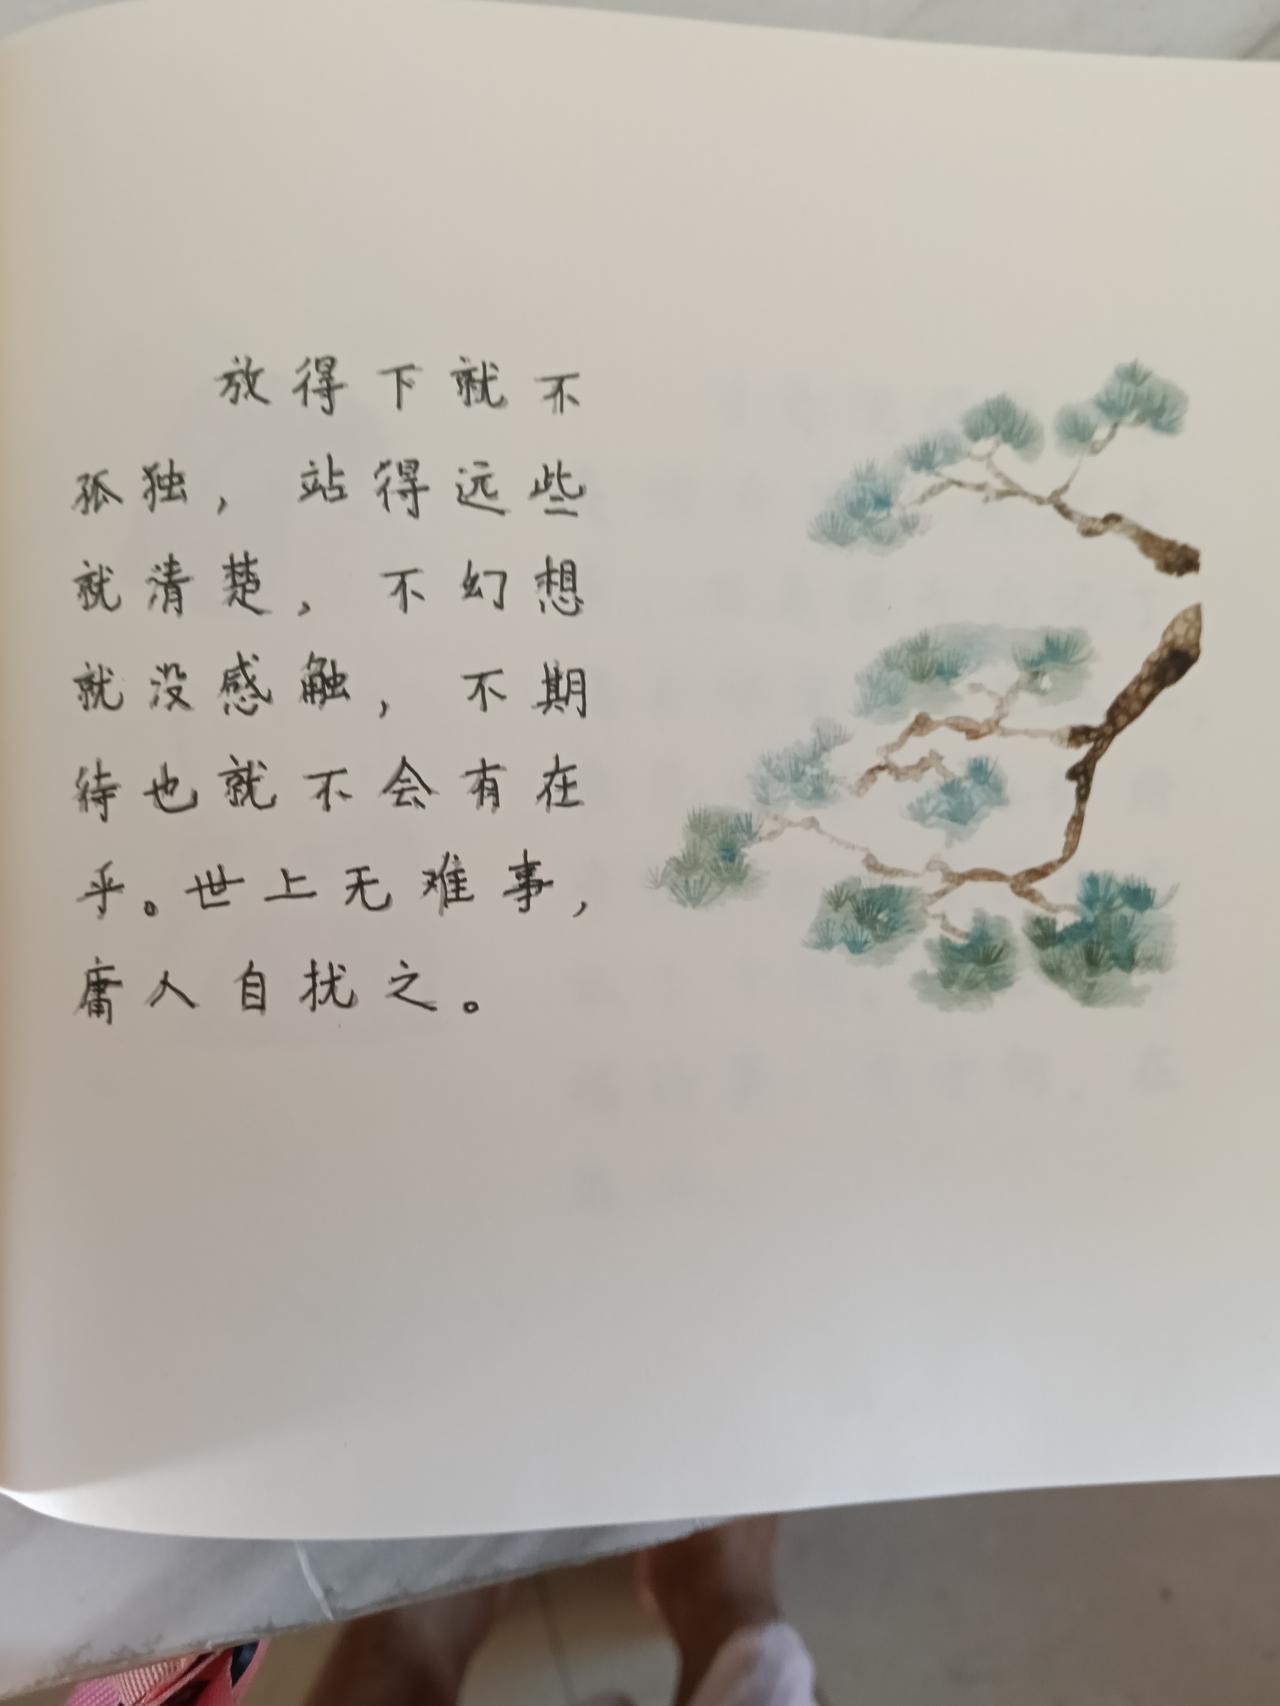 放得下就不
孤独，站得远些
就清楚，不幻想
就没感触，不期
待也就不会有在
乎。世上无难事，
庸人自扰之。